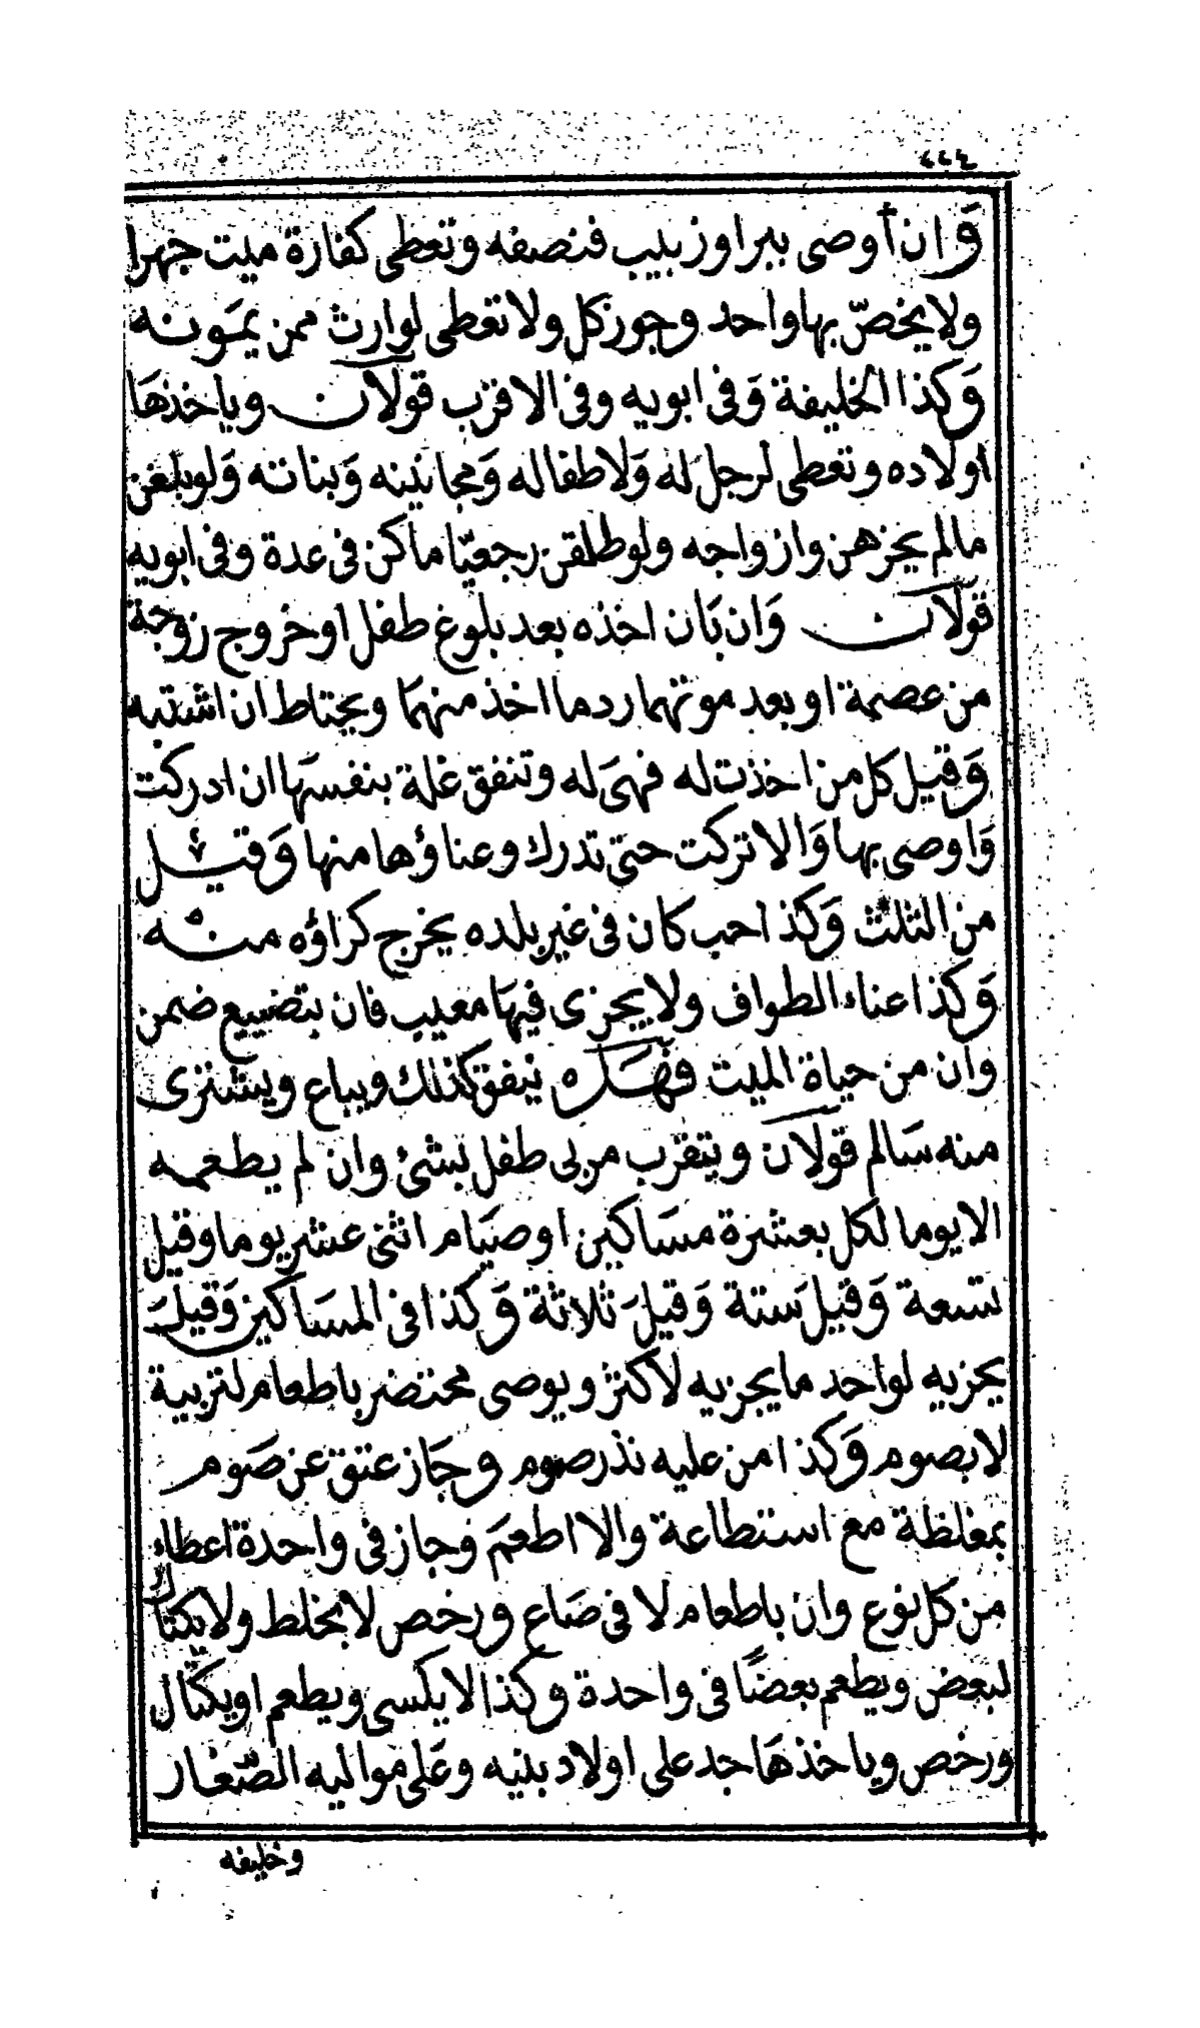 ٤٤٤
وان أوصى ببر او زبيب فنصفه وتعطى كفارة ميت جهرا
ولا يخصّ بها واحد وجوز كل ولا تعطى لوارث ممن يمونه
وكذا الخليفة وفى ابويه وفى الاقرب قولان وياخذها
اولاده وتعطى لرجل له ولاطفاله ومجانينه وبناته ولو بلغن
مالم يجزهن وازواجه ولو طلقن رجعيّا ما كن فى عدة وفى ابويه
قولان وان بان اخذه بعد بلوغ طفل او خروج زوجة
من عصمة او بعد موتهما رد ما اخذ منهما ويحتاط ان اشتبه
وقيل كل من اخذت له فهى له وتنفق غلة بنفسها ان ادركت
واوصى بها والا تركت حتى تدرك وعناؤها منها وقيل
من الثلث وكذا حب كان فى غير بلده يخرج كراؤه منه
وكذا عناء الطواف ولا يجزى فيها معيب فان بتضييع ضمن
وان من حياة الميت فهل ينفق كذلك ويباع ويشترى
منه سالم قولان ويتقرب مربى طفل بشئ وان لم يطعمه
الا يوما لكل بعشرة مساكين او صيام اثنى عشر يوما وقيل
تسعة وقيل ستة وقيل ثلاثة وكذا فى المساكين وقيل
يجزيه لواحد ما يجزيه لاكثر ويوصى محتضر باطعام لتربية
لا بصوم وكذا من عليه نذر صوم وجاز عتق عن صوم
بمغلظة مع استطاعة والا اطعم وجاز فى واحدة اعطاء
من كل نوع وان باطعام لا فى صاع ورخص لا بخلط ولا يكتال
لبعض ويطعم بعضا فى واحدة وكذا لا يكسى ويطعم او يكتال
ورخص وياخذها جد على اولاد بنيه وعلى مواليه الصّغار
وخليفه